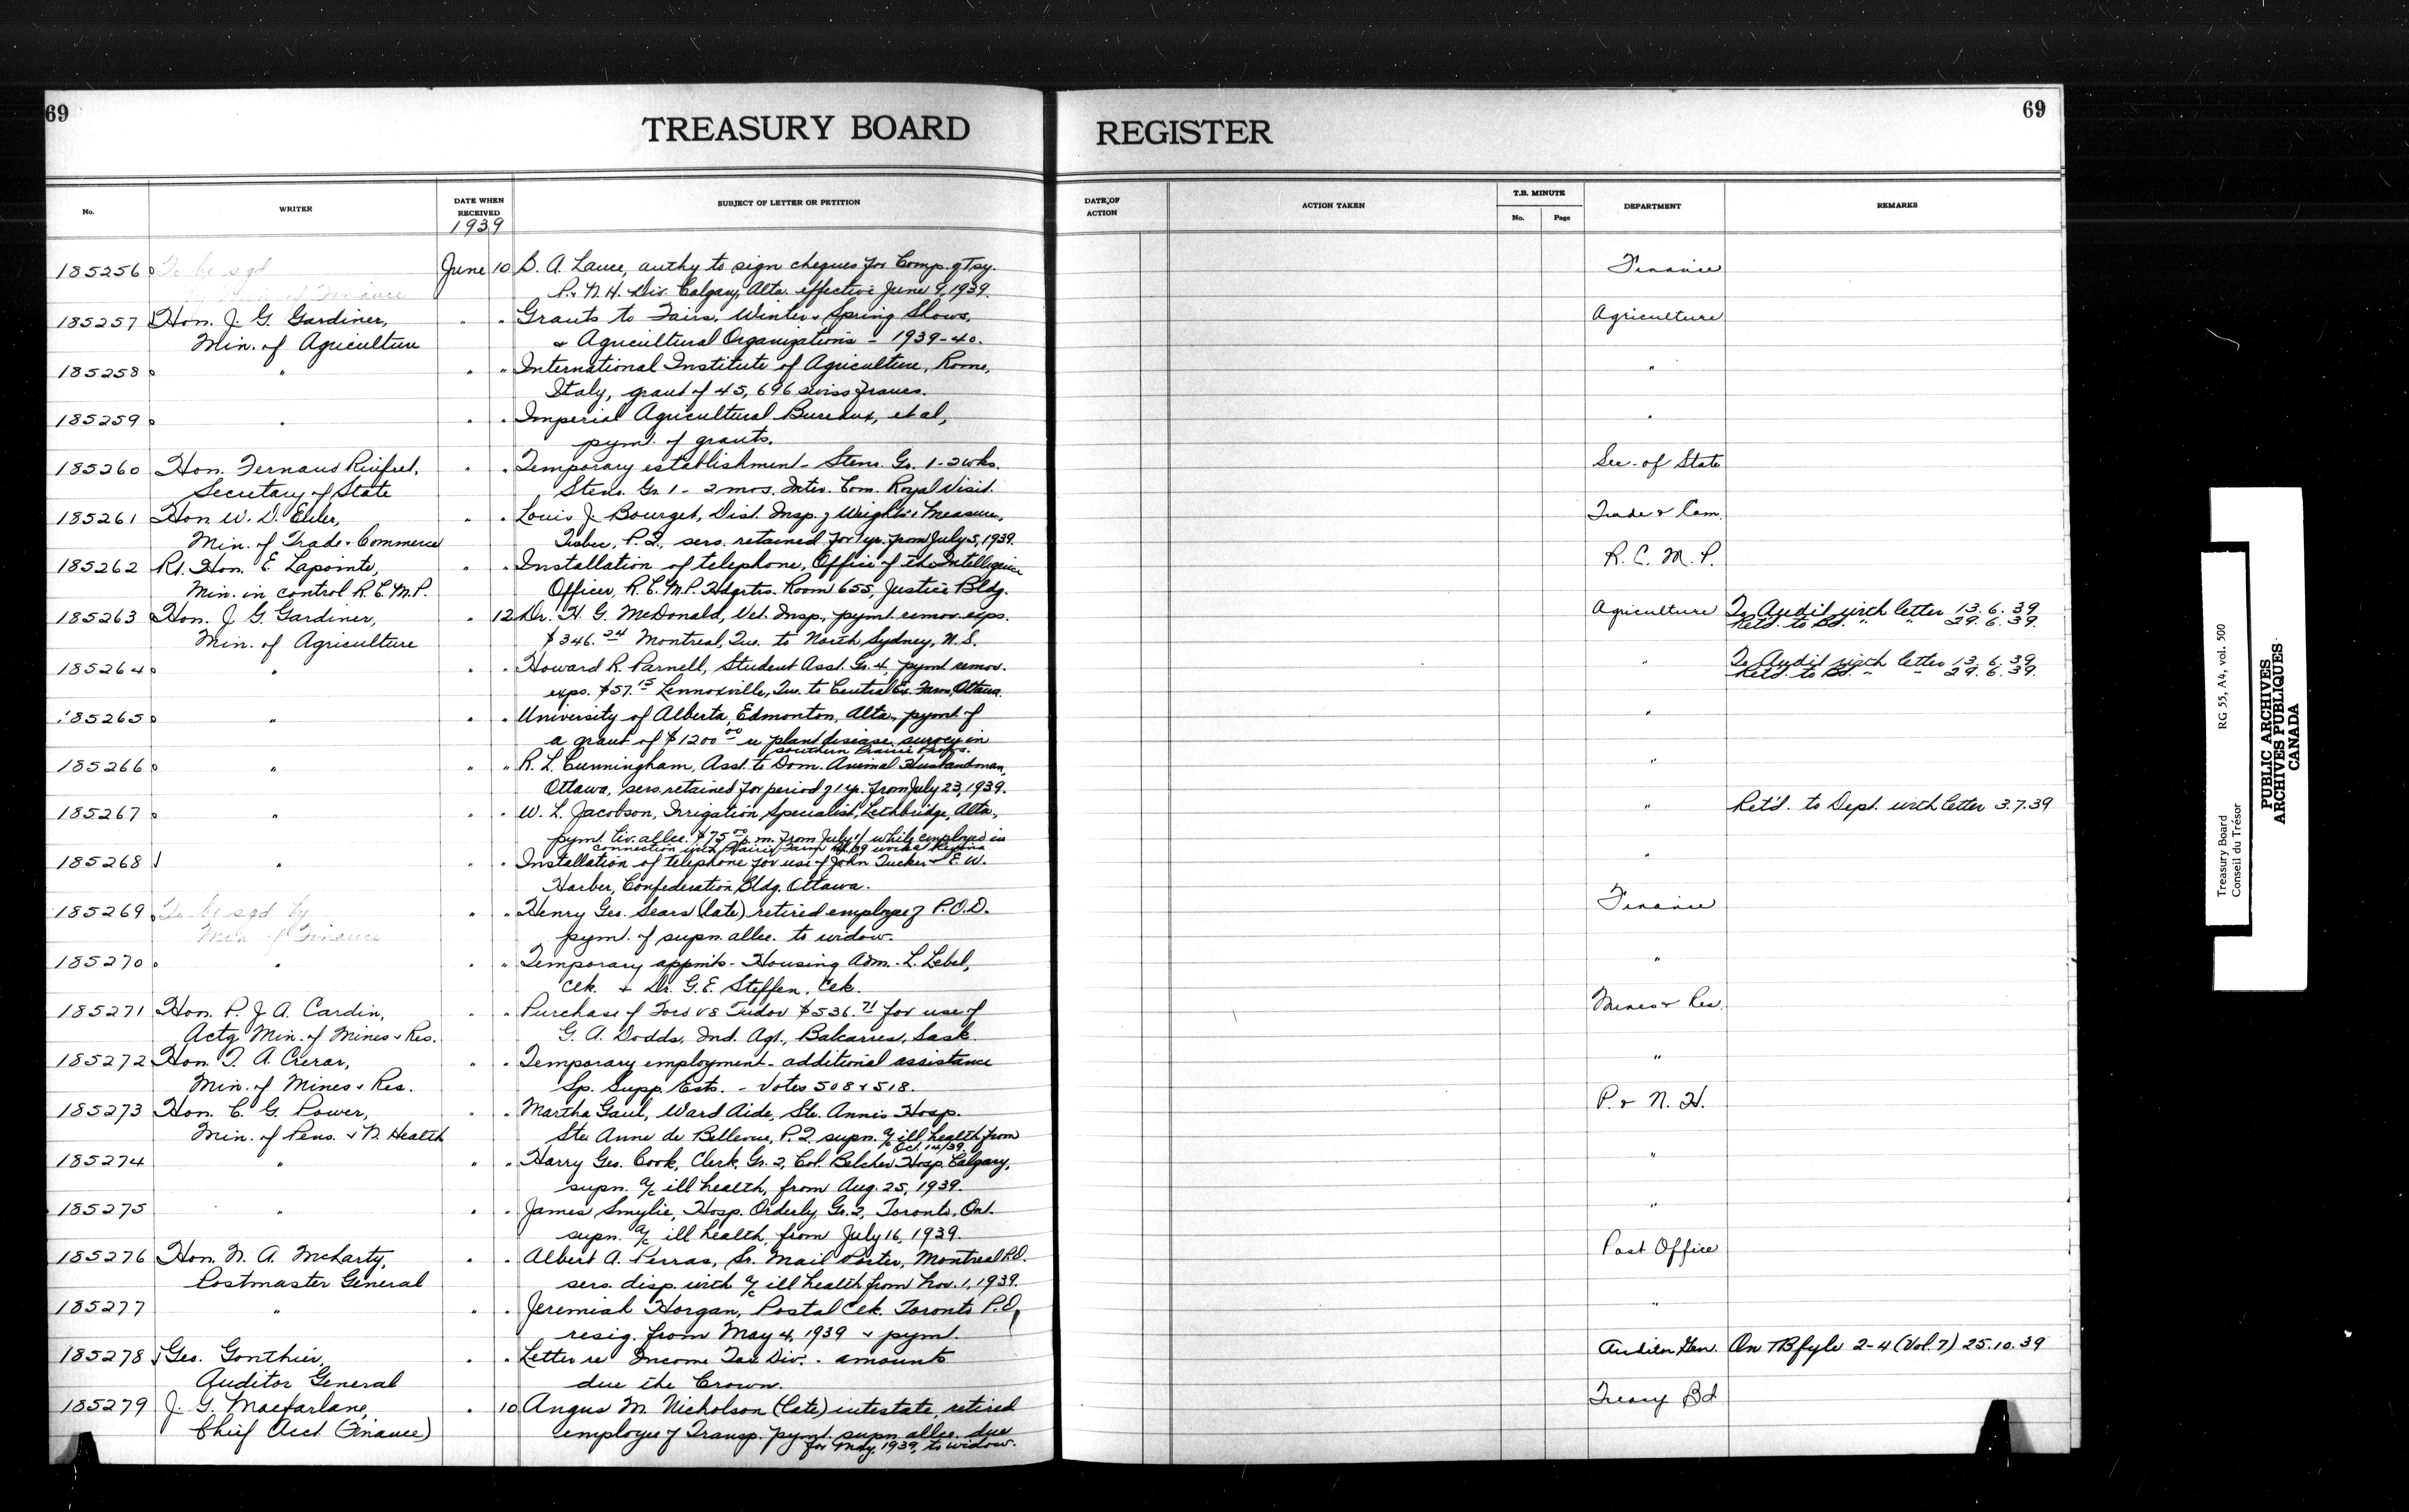 69
TREASURY BOARD REGISTER
69
No. WRITER DATE WHEN RECEIVED SUBJECT OF LETTER OR PETITION DATE OF ACTION ACTION TAKEN T.B. MINUTE No. Page DEPARTMENT REMARKS
1939
185256 To be sgd June 10 D. A. Lance, authy to sign cheques for Comp. of Tsy. Finance
Min of Finance P. & N.H. Div. Calgary, Alta. effective June 9, 1939.
185257 Hon. J. G. Gardiner, " " Grants to Fairs, Winter & Spring Shows, Agriculture
Min. of Agriculture & Agricultural Organizations - 1939-40.
185258 " " " International Institute of Agriculture, Rome, "
Italy, grant of 45,696 Swiss Francs.
185259 " " " Imperial Agricultural Bureaux, et al, "
pymt. of grants.
185260 Hon. Fernand Rinfret, " " Temporary establishment - Steno. Gr. 1 - 2 wks. Sec. of State
Secretary of State Steno. Gr. 1 - 2 mos. Inter. Com. Royal Visit.
185261 Hon W. D. Euler, " " Louis J. Bourget, Dist. Insp. of Weights & Measure, Trade & Com.
Min. of Trade & Commerce Quebec, P.Q., sers. retained for 1 yr. from July 5, 1939.
185262 Rt. Hon. E. Lapointe, " " Installation of telephone, Office of the Intelligence R. C. M. P.
Min. in control R.C.M.P. Officer, R.C.M.P. Hdqrtrs. Room 655, Justice Bldg.
185263 Hon. J. G. Gardiner, " 12 Dr. H. G. McDonald, Vet. Insp., pymt. remov. exps. Agriculture To Audit with letter 13.6.39
Ret'd. to Bd. " " 29.6.39.
Min. of Agriculture $346.24 Montreal, Que. to North Sydney, N.S.
185264 " " " Howard R. Parnell, Student Asst. Gr. 4, pymt remov. " To Audit with letter 13.6.39
Ret'd. to Bd. " " 29.6.39.
exps. $57.15 Lennoxville, Que. to Central Ex. Farm, Ottawa.
185265 " " " University of Alberta, Edmonton, Alta., pymt. of "
a grant of $1200.00 re plant disease survey in
southern Prairie Provs.
185266 " " " R. L. Cunningham, Asst. to Dom. Animal Husbandman, "
Ottawa, sers. retained for period of 1 yr. from July 23, 1939.
185267 " " " W. L. Jacobson, Irrigation Specialist, Lethbridge, Alta., " Ret'd. to Dept. with letter 3.7.39
pymt. liv. allce. $75.00 p.m. from July 1/ while employed in
connection with Prairie Farm work Regina
185268 " " " Installation of telephone for use of John Tucker & E. W. "
Harber, Confederation Bldg. Ottawa.
185269 To be sgd by " " Henry Geo. Sears (late) retired employee of P.O.D. Finance
Min of Finance pymt. of supn. allce. to widow.
185270 " " " Temporary appmts - Housing Adm. - L. Lebel, "
Clk. & Dr. G. E. Steffen, Clk.
185271 Hon. P. J. A. Cardin, " " Purchase of Ford V8 Tudor $536.71 for use of Mines & Res.
Actg Min. of Mines & Res. G. A. Dodds, Ind. Agt., Balcarres, Sask.
185272 Hon. T. A. Crerar, " " Temporary employment - additional assistance "
Min. of Mines & Res. Sp. Supp. Ests. - Votes 508 & 518.
185273 Hon. C. G. Power, " " Martha Gaul, Ward Aide, Ste. Anne's Hosp. P. & N. H.
Min. of Pens. & N. Health Ste Anne de Bellevue, P.Q. supn. a/c ill health from
Oct. 1st/39.
185274 " " " Harry Geo. Cook, Clerk, Gr. 2, Col. Belcher Hosp. Calgary, "
supn. a/c ill health, from Aug. 25, 1939.
185275 " " " James Smylie, Hosp. Orderly, Gr. 2, Toronto, Ont. "
supn. a/c ill health, from July 16, 1939.
185276 Hon. N. A. McLarty, " " Albert A. Perras, Sr. Mail Porter, Montreal P.O. Post Office
Postmaster General sers. disp. with a/c ill health from Nov. 1, 1939.
185277 " " " Jeremiah Horgan, Postal Clk. Toronto P.O. "
resig. from May 4, 1939 & pymt.
185278 Geo. Gonthier, " " Letter re Income Tax Div. - amounts Auditor Gen. On TB fyle 2-4 (Vol. 7) 25.10.39
Auditor General due the Crown.
185279 J. G. Macfarlane, " 10 Angus M. Nicholson (late) intestate, retired Treasy Bd
Chief Acct (Finance) employee of Transp. pymt. supn allce. due
for May, 1939, to widow.
Treasury Board RG 55, A4, vol. 500
Conseil du Trésor
PUBLIC ARCHIVES
ARCHIVES PUBLIQUES
CANADA